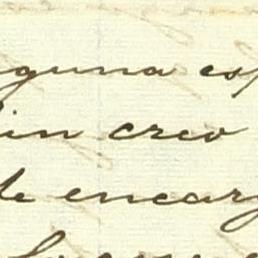 guna es
in creo
de encar